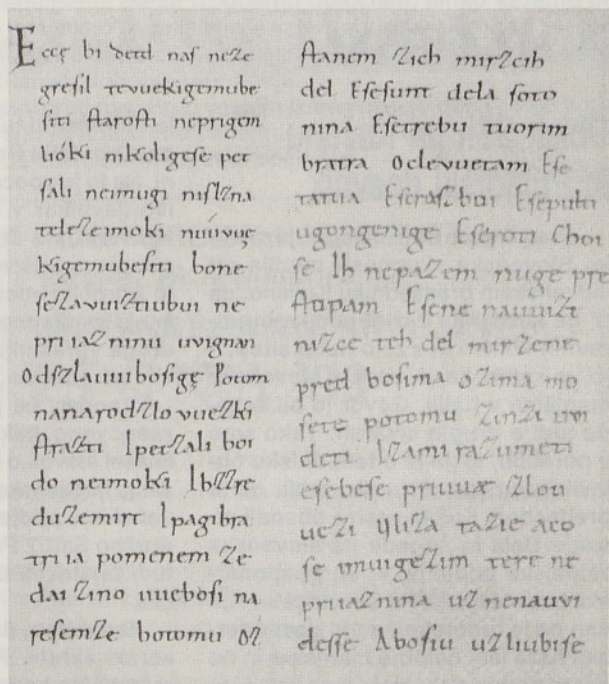 Eccę bi detd naſ neze
greſil tevuekigemube
ſiti ſtaroſti neprigem
lióki nikoligeſe pet
ſali neimugi niſlzna
teleze imoki niúvuę
kigemubeſiti bone
ſezavuiztiubui ne
priiaznínu uvignan
Odſzlauuiboſigę Potom
nanarodzlovuezki
ſtrazti Ipetzali boi
do neimoki Ibzzre
duzemirt Ipagibra
triia pomenem ze
dai zino uueboſi na
reſemze botomu oz
ſtanem zich mirzcih
del Eſeſunt dela ſoto
nina Eſetrebu tuorim
bratra Oclevuetam Eſe
tatua Eſeraſzboi Eſepulti
ugongenige Eſeroti Choi
ſe Ih nepazem nuge pre
ſtopam Eſene nauuizt
nizce teh del mirzene
pred boſima ozima mo
ſete potomu zinzi uvi
deti Izami razumeti
eſebeſe priuuæ zlou
uezi Uliza tazie aco
ſe imuigezim tere ne
priiaznina uz nenauvi
deſſe Aboſiu uzliubiſe